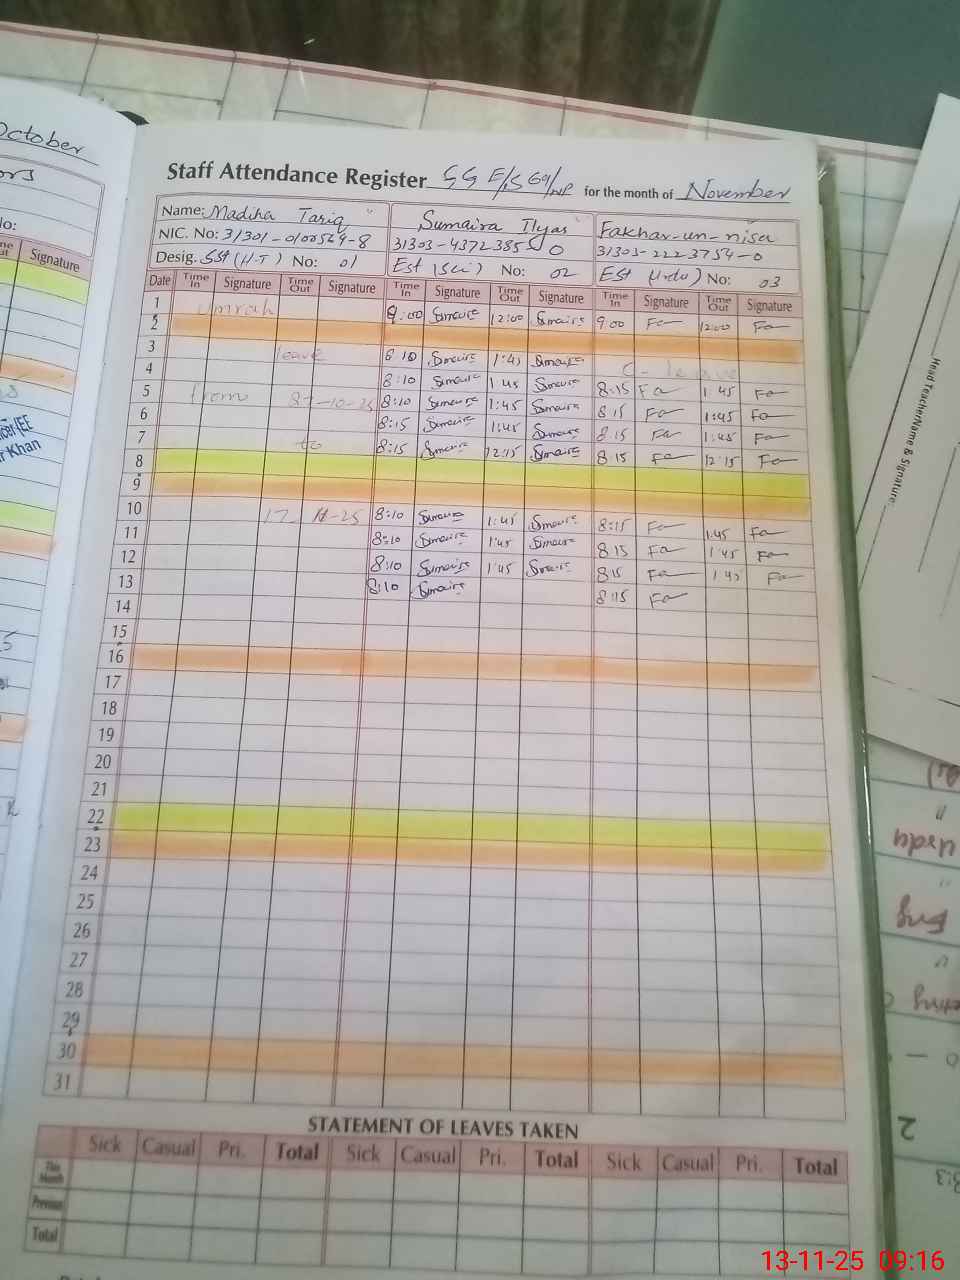 October
Staff Attendance Register for the month of November
Name: Madiha Tariq Sumaira Ilyas Fakhar-un-nisa
NIC. No: 31303-2223754-0
Desig. SST (H-T) No: 01 Est (Sci) No: 02 Est (Urdu) No: 03
Signature
Date Time In Signature Time Out Signature Time In Signature Time Out Signature Time In Signature Time Out Signature
1 Umrah 9:00 Sumaira 12:00 Sumaira 9:00 Fa 12:00 Fa
2
3 leave 8:10 Sumaira 1:45 Sumaira C-leave
4 8:10 Sumaira 1:45 Sumaira 8:15 Fa 1:45 Fa
5 from 10-25 8:10 Sumaira 1:45 Sumaira 8:15 Fa 1:45 Fa
6 8:15 Sumaira 1:45 Sumaira 8:15 Fa 1:45 Fa
7 to 8:15 Sumaira 12:15 Sumaira 8:15 Fa 12:15 Fa
8
9
10 17-11-25 8:10 Sumaira 1:45 Sumaira 8:15 Fa 1:45 Fa
11 8:10 Sumaira 1:45 Sumaira 8:15 Fa 1:45 Fa
12 8:10 Sumaira 1:45 Sumaira 8:15 Fa 1:45 Fa
13 8:10 Sumaira 8:15 Fa
14
15
16
17
18
19
20
21
22
23
24
25
26
27
28
29
30
31
STATEMENT OF LEAVES TAKEN
Sick Casual Pri. Total Sick Casual Pri. Total Sick Casual Pri. Total
This Month
Previous
Total
Khan
Head Teacher Name & Signature:
Urdu
Eng
2
13-11-25 09:16